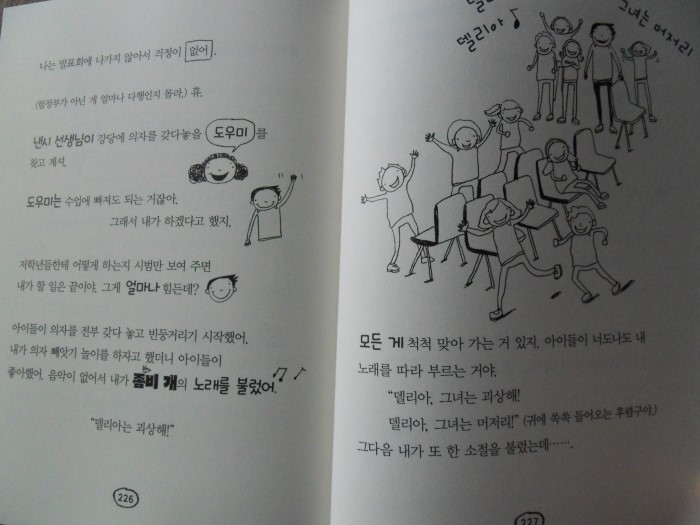 나는 발표회에 나가지 않아서 걱정이 없어.
(합창부가 아닌 게 얼마나 다행인지 몰라.) 휴.
낸시 선생님이 강당에 의자를 갖다놓을 도우미를
찾고 계셔.
도우미는 수업에 빠져도 되는 거잖아.
그래서 내가 하겠다고 했지.
저학년들한테 어떻게 하는지 시범만 보여 주면
내가 할 일은 끝이야. 그게 얼마나 힘든데?
아이들이 의자를 전부 갖다 놓고 빈둥거리기 시작했어.
내가 의자 빼앗기 놀이를 하자고 했더니 아이들이
좋아했어. 음악이 없어서 내가 좀비 개의 노래를 불렀어.
"델리아는 괴상해!"
226
델리아
그녀는 머저리
모든 게 척척 맞아 가는 거 있지. 아이들이 너도나도 내
노래를 따라 부르는 거야.
"델리아, 그녀는 괴상해!
델리아, 그녀는 머저리!" (귀에 쏙쏙 들어오는 후렴구야.)
그다음 내가 또 한 소절을 불렀는데…….
227